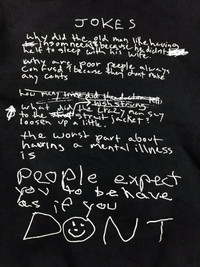 JOKES
why did the old man like having
insomnea? because he didnt
have to sleep with his wife.
why are poor people always
confused? because they dont make
any cents
how many
high strung
what did the crazy man say
to the strait jacket?
loosen up a little.
the worst part about
having a mental illness
is
people expect
you to behave
as if you
DONT